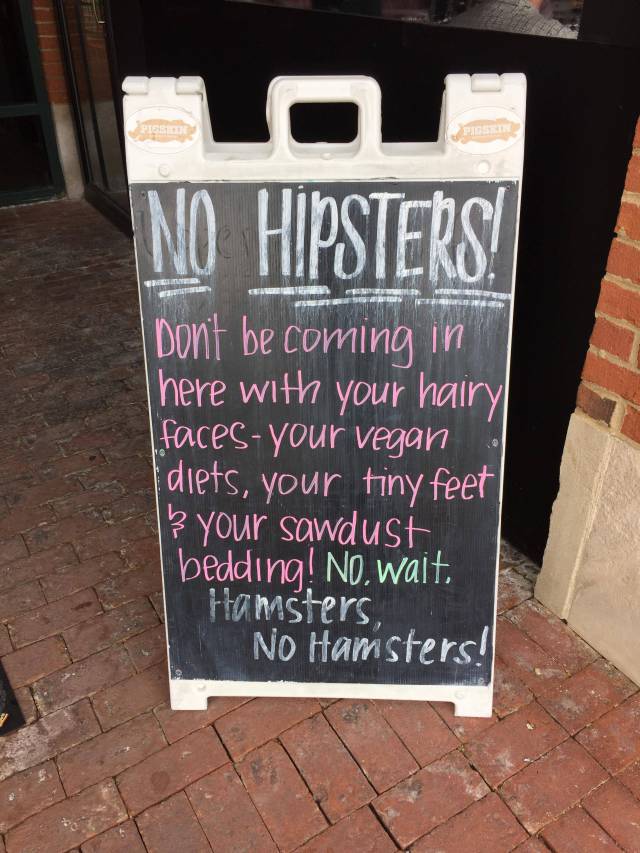 PIGSKIN
PIGSKIN
NO HIPSTERS!
Don't be coming in
here with your hairy
faces - your vegan
diets, your tiny feet
& your sawdust
bedding! NO, wait,
Hamsters,
NO Hamsters!